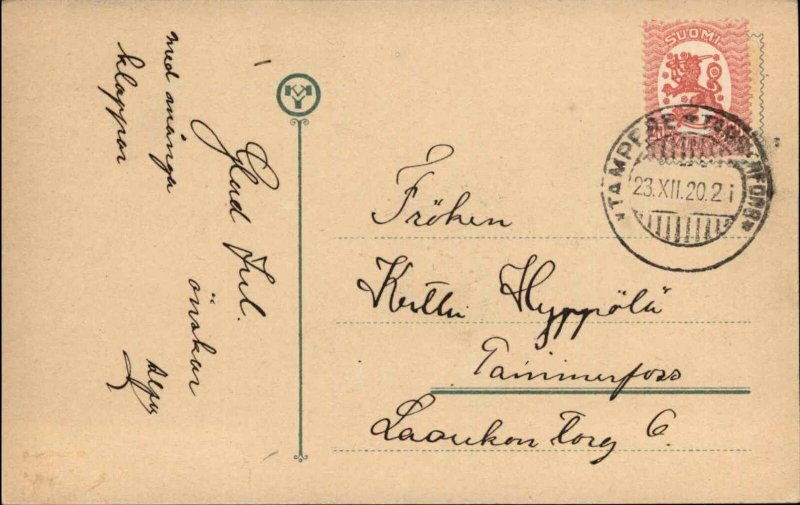 med många
klappar
God Jul.
önskar
SUOMI
TAMPERE * TAMMERFORS *
23.XII.20.2 i
Fröken
Kerttu Hyppölä
Tammerfoss
Laaukon torg 6.